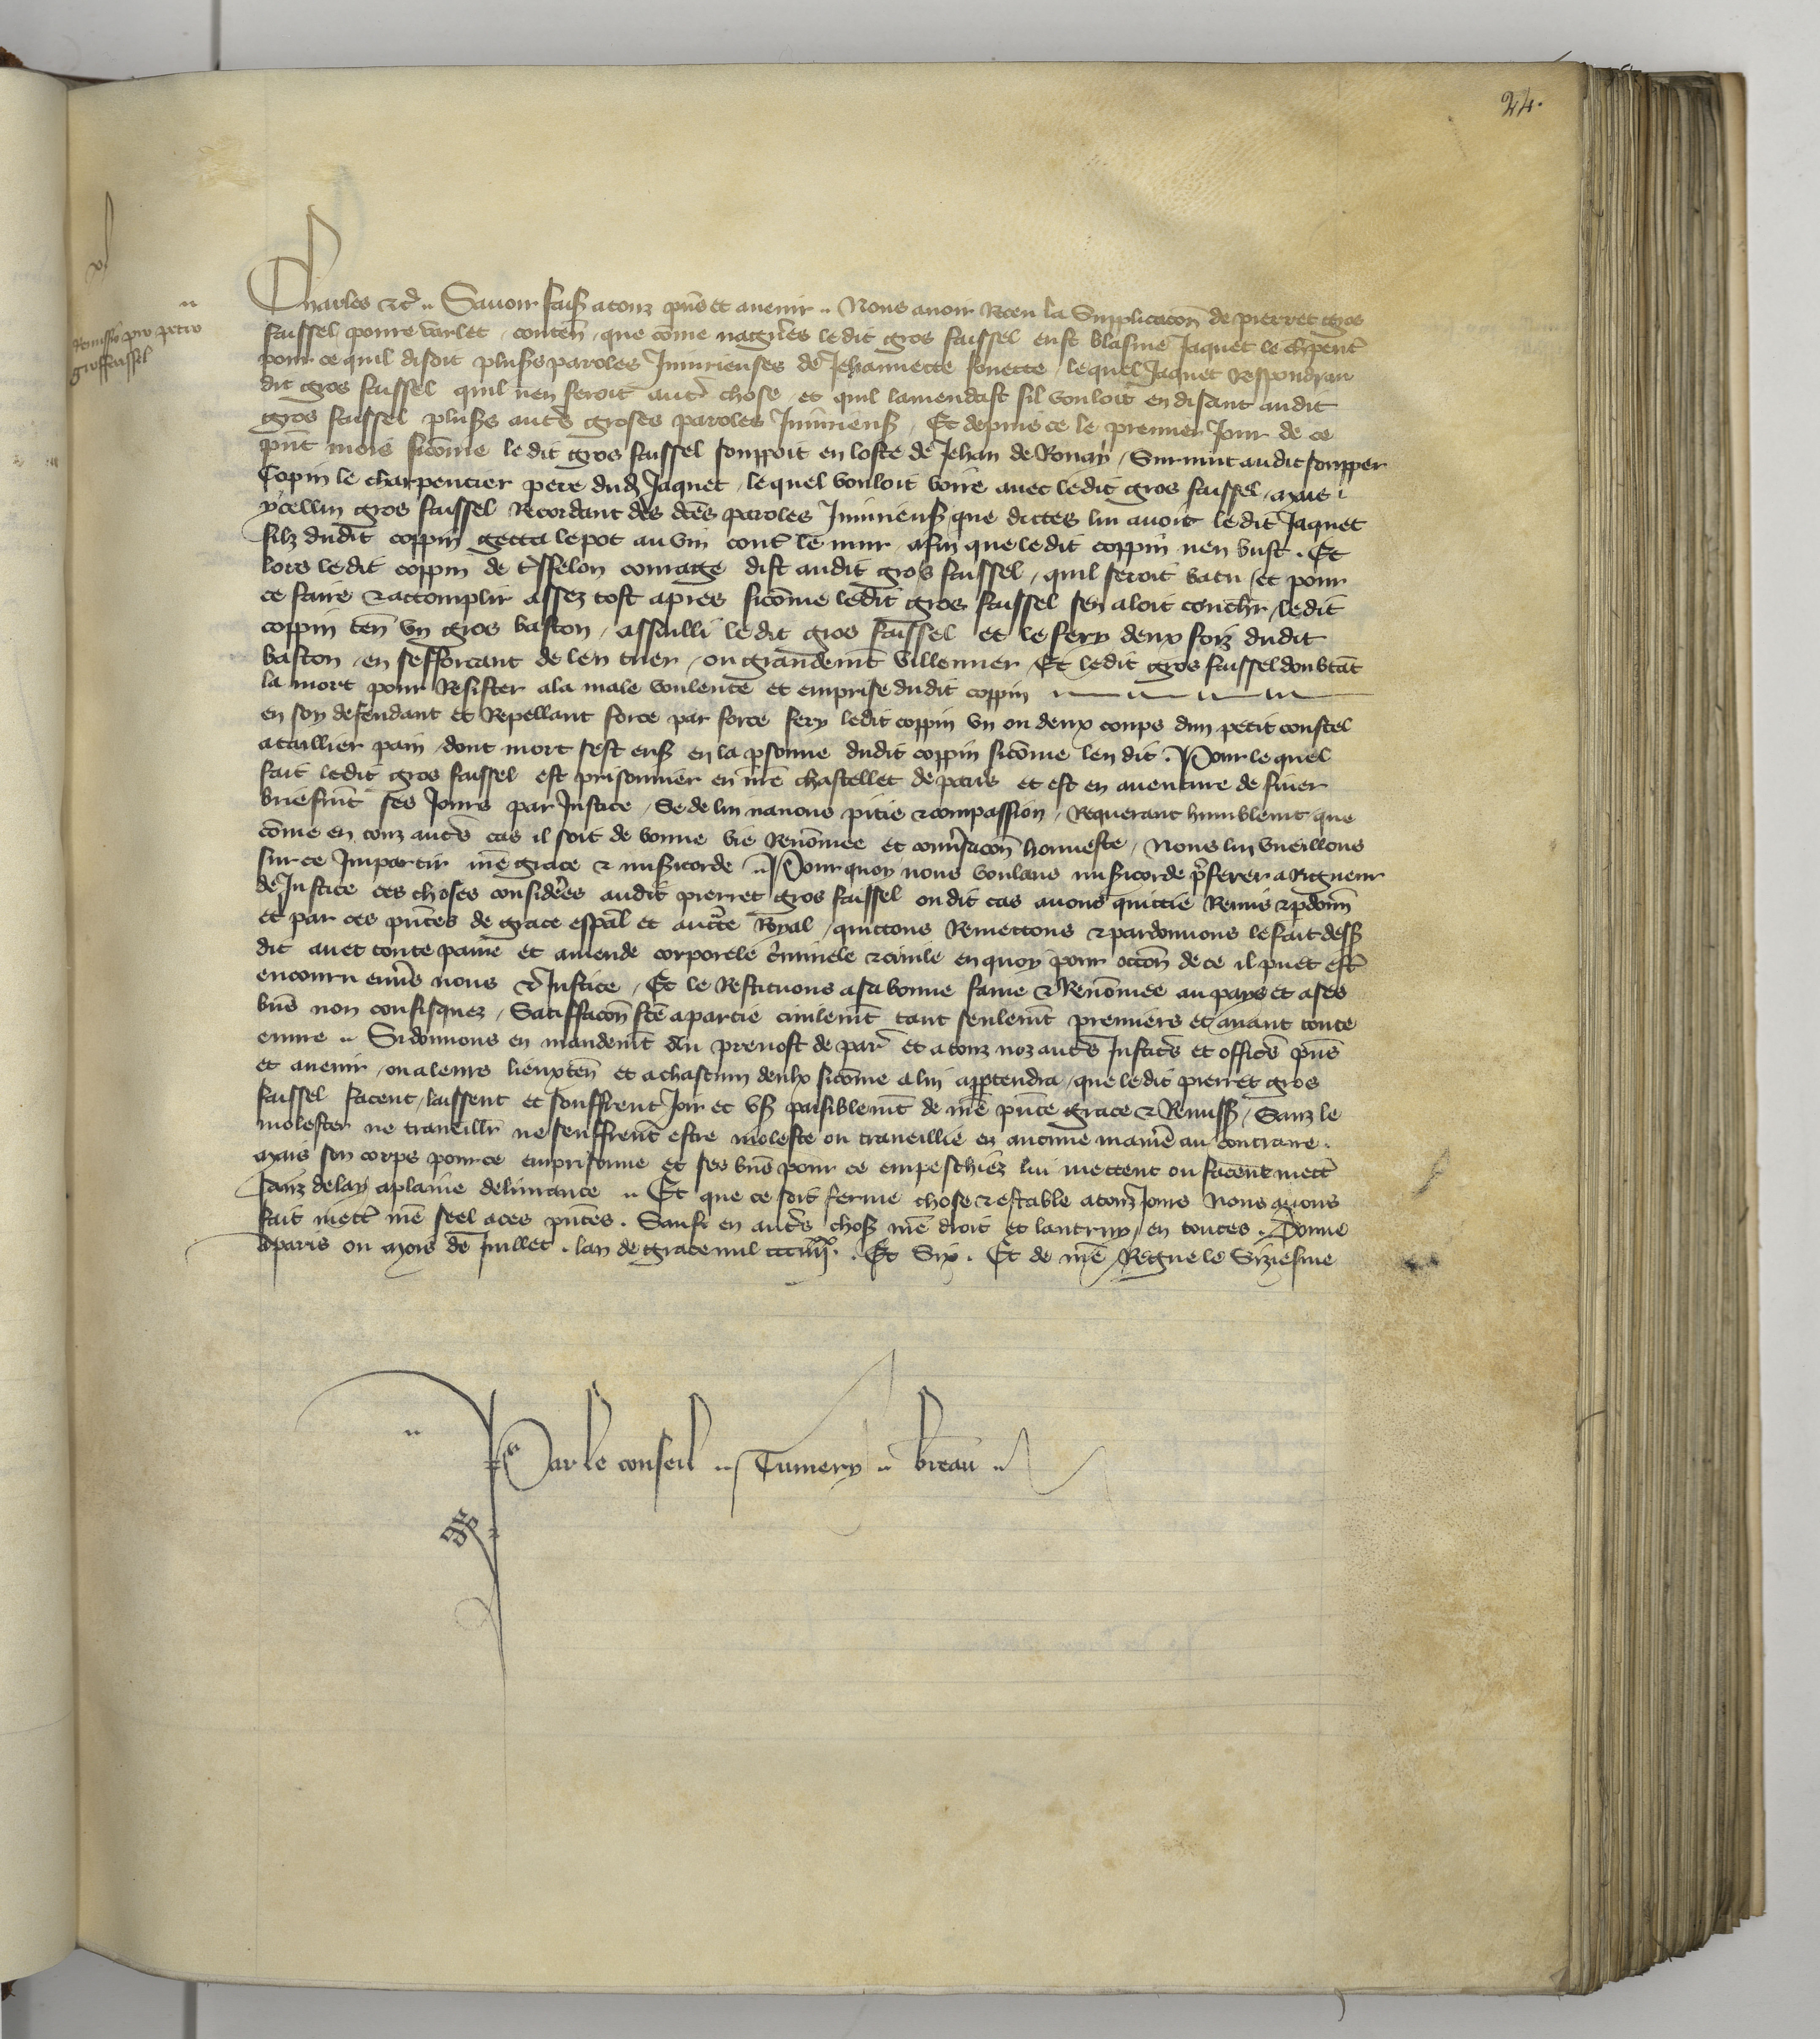 24.
xl
Remissio pro petro
grosfaissel
Charles &c. Savoir faisz a touz pñs et avenir. Nous avoir Receu la Supplicacoñ de pierret gros
faissel povre varlet, conteñ que cõme nagũes le dit gros faissel eust blasmé Jaquet le chpent
pour ce quil disoit plusrs paroles Iniurieuses de Jehannette sonette, lequel Jaquet respondy au
dit gros faissel quil nen feroit aut chose, et quil lamendast sil vouloit en disant audit
gros faissel plusrs auts groses paroles Iniurieuses, Et depuis ce le premier Jour de ce
pñt mois sicõme le dit gros faissel souppoit en loste de Jehan de Rouay, Survint audit soupper
Copin le charpentier pere dud Jaquet, lequel vouloit boire avec ledit gros faissel, mais
ycellui gros faissel Recordant des dces paroles Iniurieuses que dictes lui avoit ledit Jaquet
filz dudit coppin getta le pot au vin cont le mur, afin que ledit coppin nen bust. Et
lors ledit coppin de tsfelon courage dist audit gros faissel, quil seroit batu, et pour
ce faire & accomplir assez tost apres sicõme ledit gros faissel sen aloit couchr, ledit
coppin teñ un gros baston, assailli le dit gros faissel et le fery deux foiz dudit
baston, en sefforcant de len tuer, ou grandemt villenner, Et ledit gros faissel doubtãt
la mort pour Resister a la male voulenté et emprise dudit coppin
en soy defendant et Repellant force par force fery ledit coppin un ou deux coups dun petit coustel
a taillier pain, dont mort sest ensz en la psonne dudit coppin sicõme len dit. Pour le quel
fait ledit gros faissel est prisonnier en nre chastellet de paris et est en aventure de finer
briefmt ses Jours par Justice, Se de lui navons pitie & compassion, Requerant humblemt que
cõme en touz auts cas il soit de bonne vie Renõmee et convsacoñ honneste, Nous lui vueillons
sur ce Impartir nre grace & misicorde. Pour quoy nous voulans misicorde pferer a Rigueur
de Justice ces choses considees audit pierret gros faissel ou dit cas avons quittié Remis & pdonñ
et par ces pñtes de grace espãl et auctte Royal, quittons Remettons & pardonnons le fait dess
dit avec toute paine et amende corporele cminele & civile en quoy pour occoñ de ce il puet estr
encouru envs nous & Justice, Et le Restituons a sa bonne fame & Renõmee au pays et a ses
biñs non confisquez, Satisfacoñ fcẽ a partie civilemt tant seulemt premiers et avant toute
euvre. Si donnons en mandemt Au prevost de par et a touz noz auts Justics et offics pñs
et avenir, ou a leurs lieuxteñ et a chascun deulx sicõme a lui apptendra, que ledit pierret gros
faissel facent, laissent et souffrent Joir et usr paisiblemt de nre pñte grace & Remiss, Sanz le
molester ne traveillr ne seuffrent estre molesté ou traveillié en aucune manie au contraire.
Mais son corps pour ce emprisonné et ses biñs pour ce empeschiez lui mettent ou facent mett
sanz delay a plaine delivrance. Et que ce soit ferme chose & estable a touz Jours Nous avons
fait mett nre seel a ces pñtes. Sauf en auts chosz nre droit et lautruy en toutes. Donné
a paris ou Mois de Juillet. lan de grace mil ccciiiixx. Et Six. Et de nre Regne le Siziesme
Par le conseil .. Tumery .. breau ..